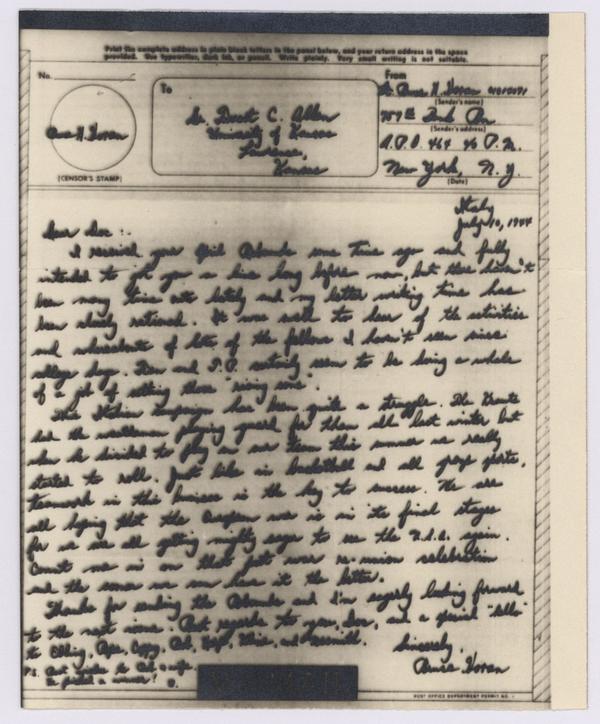 Print the complete address in plain block letters in the panel below, and your return address in the space
provided. Use typewriter, dark ink, or pencil. Write plainly. Very small writing is not suitable.
No.
To
Dr. Forrest C. Allen
University of Kansas
Lawrence,
Kansas
Bruce H. Voran
(CENSOR'S STAMP)
From
Bruce H. Voran
(Sender's name)
757 Tank Bn
(Sender's address)
A.P.O. 464 % P.M.
New York, N.Y.
(Date)
Italy
July 10, 1944
Dear Doc :-
I received your April Rebounds some time ago and fully
intended to you a line long before now, but there hasn't
been many time outs lately and my letter writing time has
been slowly rationed. It was swell to hear of the activities
and whereabouts of lots of the fellows I haven't seen since
college days. and T.P. certainly seem to be doing a whale
of a job of setting those "rising suns".
This Italian campaign has been quite a struggle. The Krauts
had the weatherman playing guard for them all last winter but
when he decided to play on our team this summer we really
started to roll. Just like in basketball and all group sports,
teamwork in this business is the key to success. We are
all hoping that the European war is in its final stages
for we are all getting mighty eager to see the U.S.A. again.
Count me in on that post war re-union celebration
and the sooner we can have it the better.
Thanks for sending the Rebounds and I'm eagerly looking forward
to the next issue. Best regards to you, Doc, and a special "hello"
to Ebling, and
Sincerely,
Bruce Voran
P.S. Best wishes to Bob & wife.
He picked a winner! B.
POST OFFICE DEPARTMENT PERMIT NO.